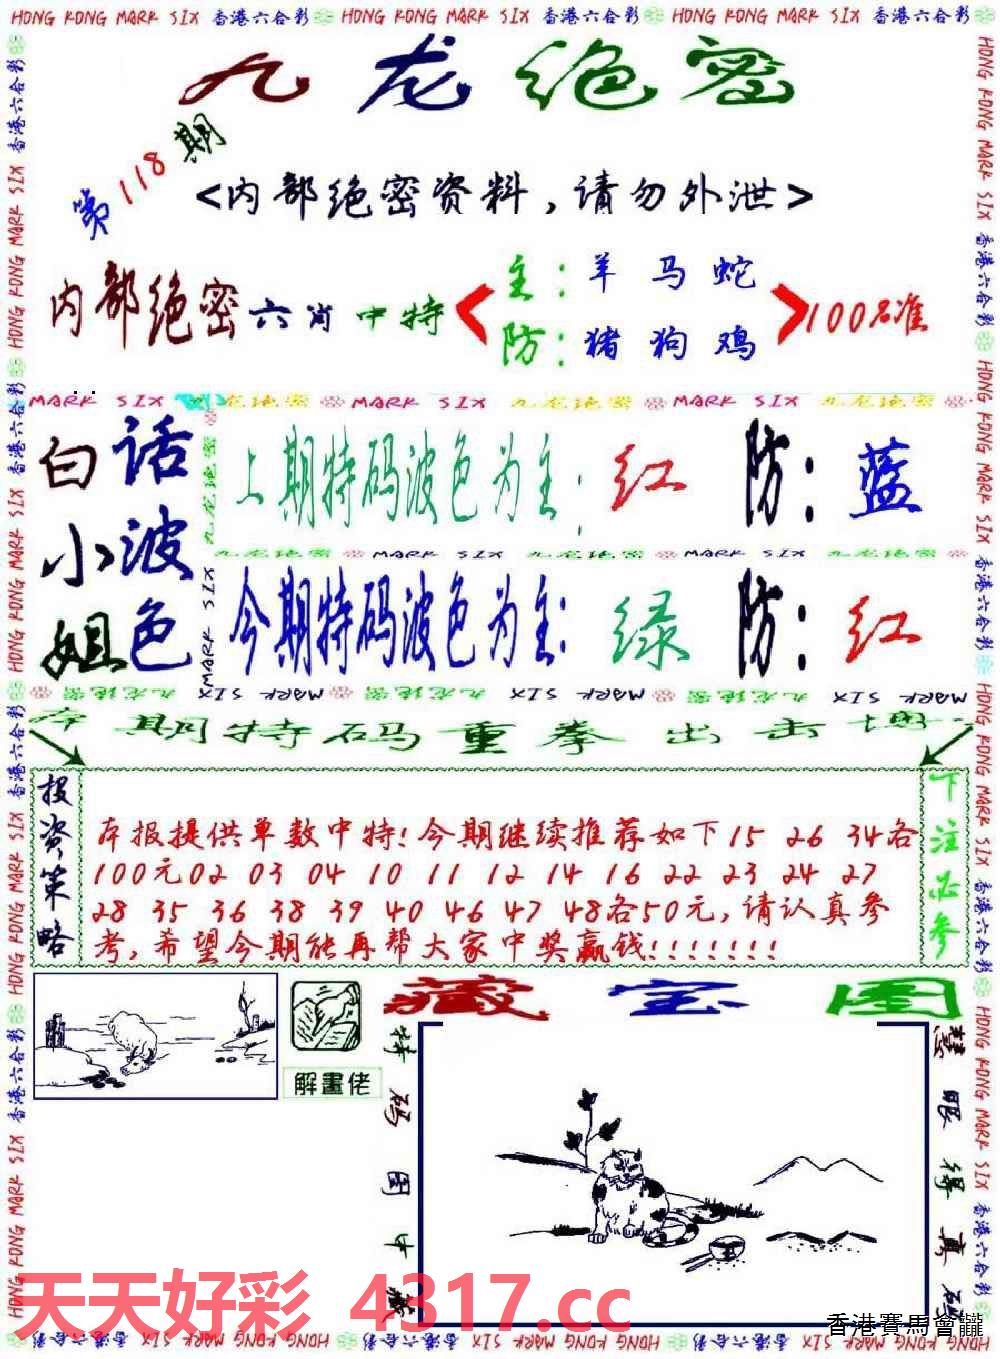 HONG KONG MARK SIX 香港六合彩 HONG KONG MARK SIX 香港六合彩 HONG KONG MARK SIX 香港六合彩
九龙绝密
第118期
<内部绝密资料,请勿外泄>
内部绝密六肖中特
主:羊 马 蛇
防:猪 狗 鸡
100%准
MARK SIX 九龙绝密 MARK SIX 九龙绝密 MARK SIX 九龙绝密
白小姐
话波色
上期特码波色为主:红 防:蓝
九龙绝密 MARK SIX 九龙绝密 MARK SIX 九龙绝密
今期特码波色为主:绿 防:红
本期特码重拳出击
投资策略
本报提供单数中特!今期继续推荐如下15 26 34各
100元02 03 04 10 11 12 14 16 22 23 24 27
28 35 36 38 39 40 46 47 48各50元,请认真参
考,希望今期能再帮大家中奖赢钱!!!!!!!
下注必参
解畫佬
藏宝图
特码图中藏
慧眼得真码
天天好彩 4317.cc
香港賽馬會